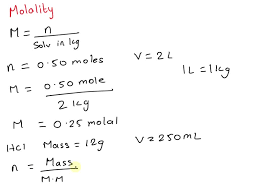 Molality
M = n / Solv in kg
n = 0.50 moles
V = 2L
1L = 1kg
M = 0.50 mole / 2kg
M = 0.25 molal
HCl Mass = 12g
V = 250mL
n = Mass / M.M